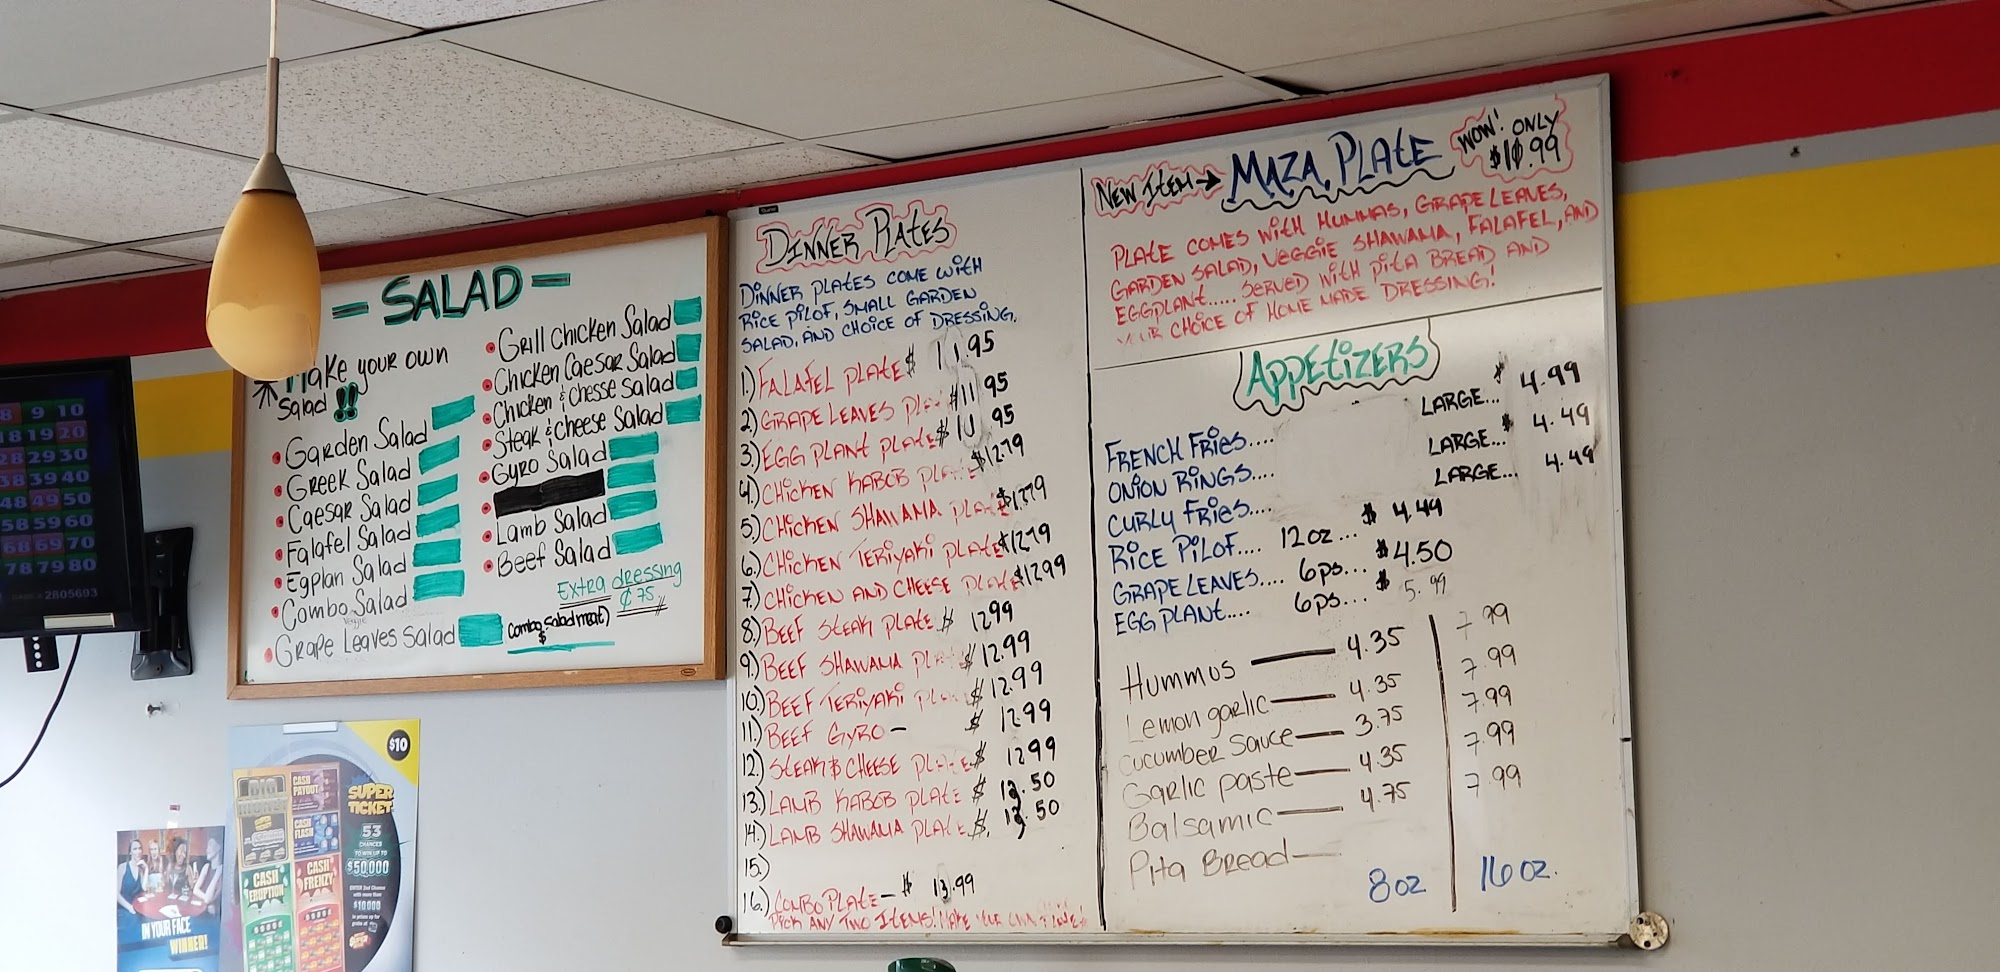 - SALAD -
Make your own
Salad !!
Garden Salad
Greek Salad
Caesar Salad
Falafel Salad
Egplan Salad
Combo Salad
Veggie
Grape Leaves Salad
Grill Chicken Salad
Chicken Caesar Salad
Chicken & Chesse Salad
Steak & Cheese Salad
Gyro Salad
Lamb Salad
Beef Salad
Extra dressing
¢ 75
Combo salad meat)
$
DINNER PLATES
DINNER PLATES COME WITH
RICE PILOF, SMALL GARDEN
SALAD, AND CHOICE OF DRESSING.
1.) FALAFEL PLATE $ 11.95
2.) GRAPE LEAVES $11 95
3.) EGG PLANT PLATE $11 95
4.) CHICKEN KABOB $1279
5.) CHICKEN SHAWAMA $1279
6.) CHICKEN TERIYAKI PLATE $1279
7.) CHICKEN AND CHEESE PLATE $1299
8.) BEEF STEAK PLATE $ 1299
9.) BEEF SHAWAMA $ 12.99
10.) BEEF TERIYAKI $ 12.99
11.) BEEF GYRO - $ 12.99
12.) STEAK & CHEESE PLATE $ 1299
13.) LAMB KABOB PLATE $ 13.50
14.) LAMB SHAWAMA PLATE $. 13.50
15.)
16.) COMBO PLATE - $ 13.99
PICK ANY TWO ITEMS! MAKE YOUR OWN PLATE!
NEW ITEM → MAZA PLATE
WOW! ONLY
$10.99
PLATE COMES WITH HUMMAS, GRAPE LEAVES,
GARDEN SALAD, VEGGIE SHAWAMA, FALAFEL, AND
EGGPLANT..... SERVED WITH PITA BREAD AND
YOUR CHOICE OF HOME MADE DRESSING!
APPETIZERS
FRENCH FRIES.... LARGE... $ 4.99
ONION RINGS.... LARGE... $ 4.49
CURLY FRIES.... LARGE... 4.49
RICE PILOF.... 12oz... $ 4.49
GRAPE LEAVES.... 6ps... $4.50
EGG PLANT.... 6ps... $ 5.99
Hummus — 4.35 7 99
Lemon garlic — 4.35 7 99
Cucumber Sauce — 3.75 7.99
Garlic paste — 4.35 7.99
Balsamic — 4.75 7 99
Pita Bread —
8 oz 16 oz.
8 9 10
18 19 20
28 29 30
38 39 40
48 49 50
58 59 60
68 69 70
78 79 80
2805693
$10
BIG
CASH
PAYOUT
CASH
FLASH
CASH
ERUPTION
CASH
FRENZY
SUPER
TICKET
53
CHANCES
TO WIN UP TO
$50,000
ENTER 2nd Chance
$10000
IN YOUR FACE
WINNER!